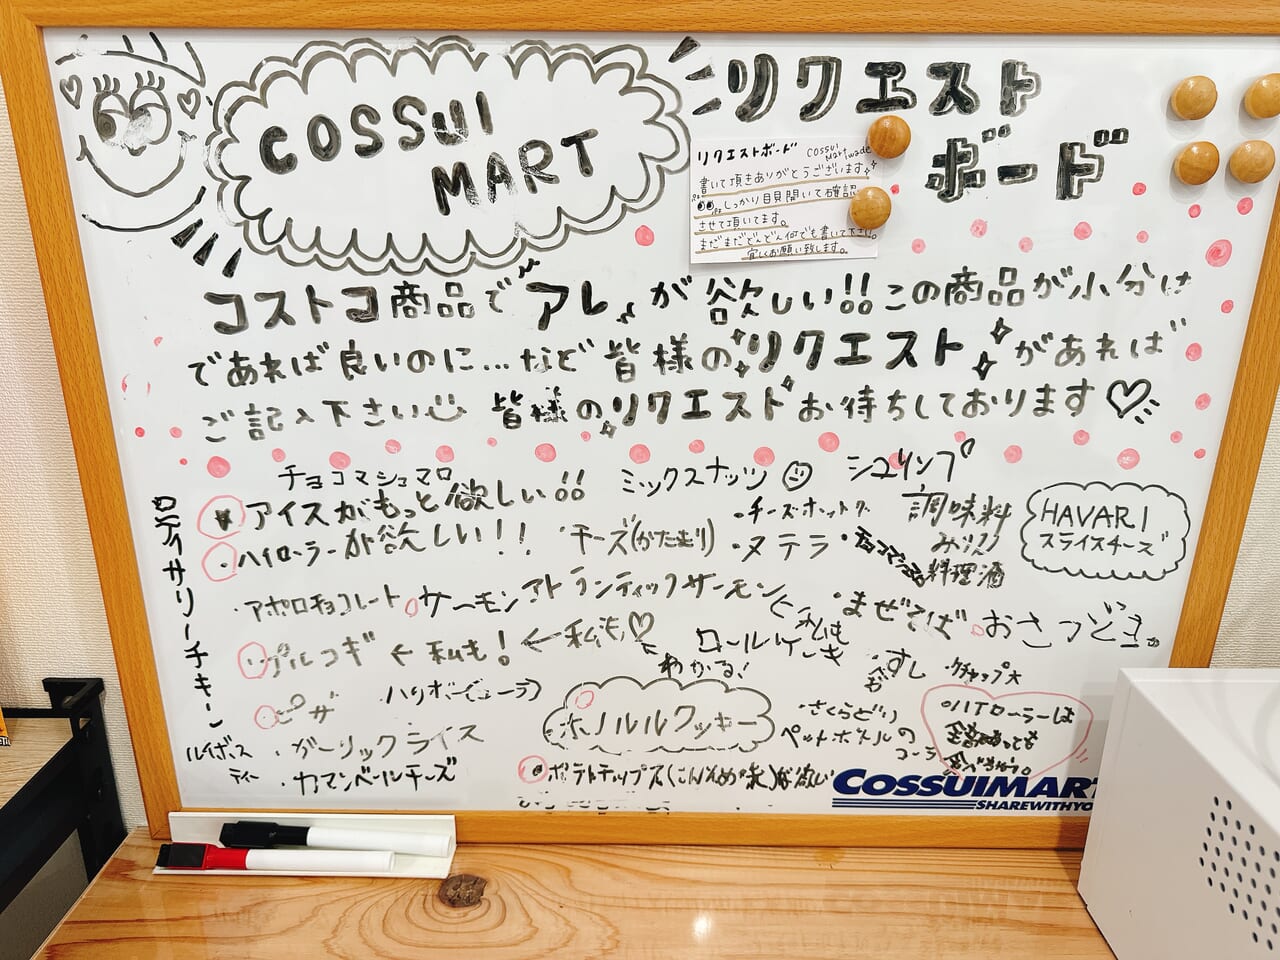 COSSUI
MART
リクエスト
ボード
リクエストボード
COSSUI
Mart wada
書いて頂きありがとうございます
しっかり目見開いて確認
させて頂いてます。
まだまだどんどん何でも書いて下さい。
宜しくお願い致します。
コストコ商品で"アレ"が欲しい!!この商品が小分け
であれば良いのに...など皆様のリクエストがあれば
ご記入下さい 皆様のリクエストお待ちしております♡
チョコマシュマロ
ミックスナッツ
シュリンプ
アイスがもっと欲しい!!
・ハイローラーが欲しい!!
チーズ(かたまり)
・チーズホットク
・ヌテラ
・チョコマシュマロ
調味料
料理酒
HAVARI
スライスチーズ
ロティサリーチキン
・アポロチョコレート
サーモン
アトランティックサーモン
・まぜそば
おさつどきっ
・プルコギ ← 私も! ← 私も♡
わかる!
ロールケーキ
すし
・ケチャップ大
・ピザ
・ハリボー(コーラ)
ホノルルクッキー
・さくらどり
ペットボトルの
コーラ
・ハイローラーは
ルイボス
ティー
・ガーリックライス
・カマンベールチーズ
・ポテトチップス(こんそめ味)が欲しい
COSSUIMART
SHAREWITHYO